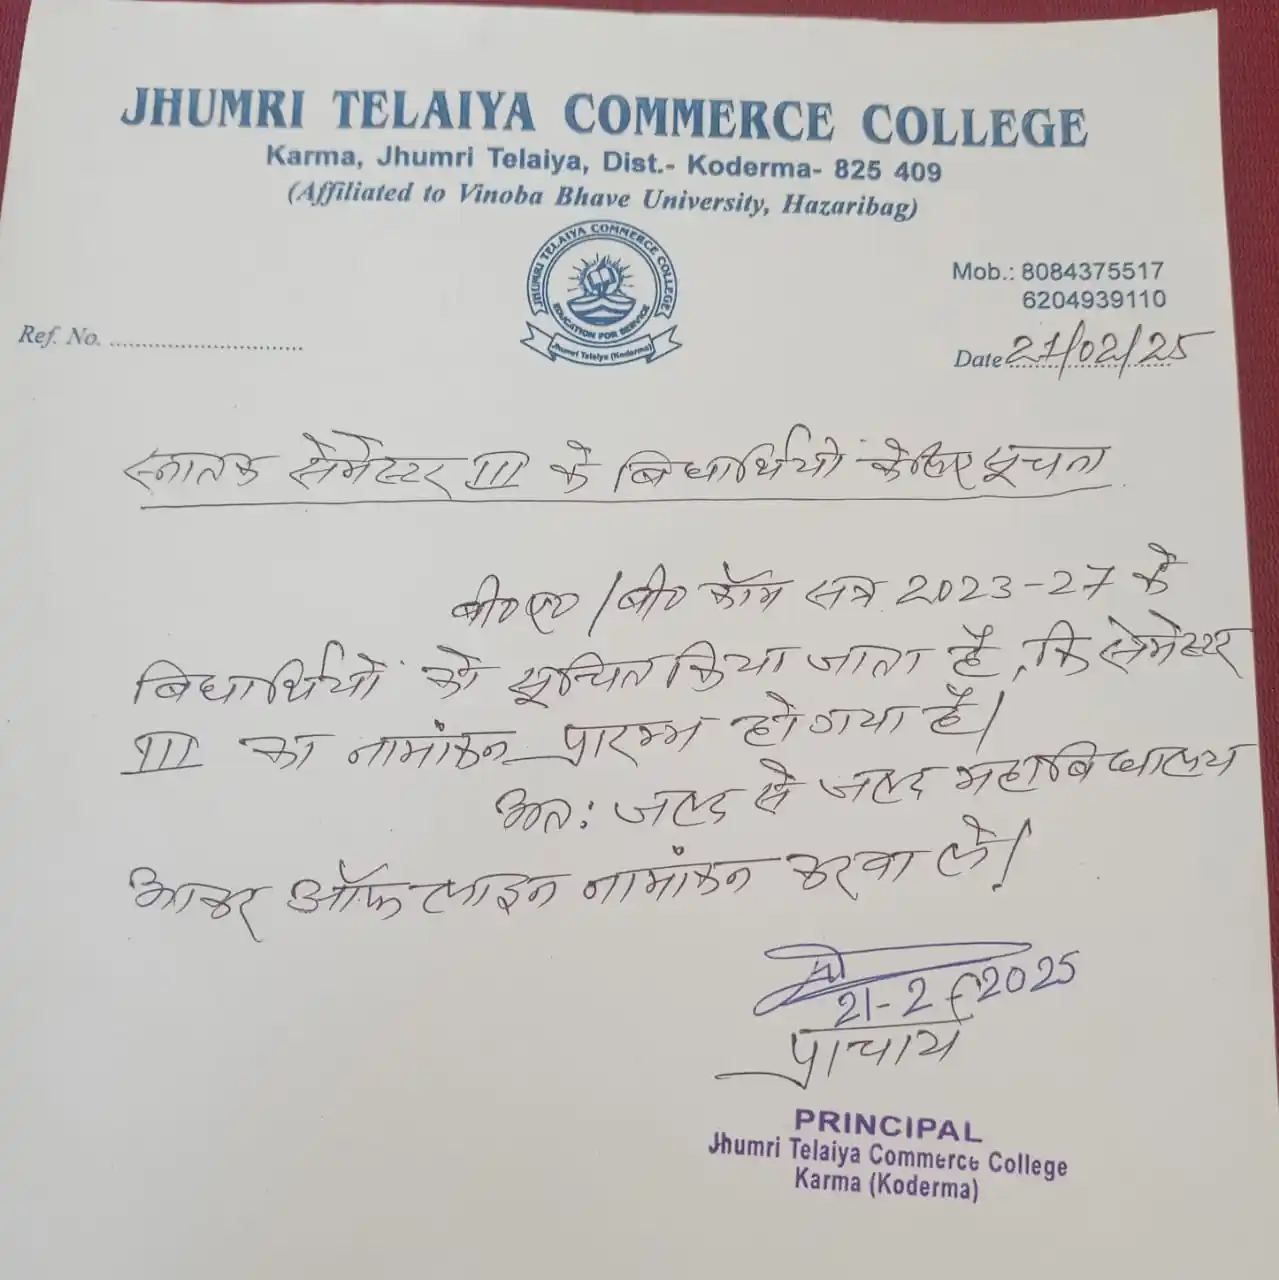 JHUMRI TELAIYA COMMERCE COLLEGE
Karma, Jhumri Telaiya, Dist.- Koderma- 825 409
(Affiliated to Vinoba Bhave University, Hazaribag)
JHUMRI TELAIYA COMMERCE COLLEGE
EDUCATION FOR SERVICE
Jhumri Telaiya (Koderma)
Mob.: 8084375517
6204939110
Ref. No. ..............................
Date 21/02/25
स्नातक सेमेस्टर III के विद्यार्थियों के लिए सूचना
बी० ए० / बी० कॉम सत्र 2023-27 के
विद्यार्थियों को सूचित किया जाता है, कि सेमेस्टर
III का नामांकन प्रारम्भ हो गया है।
अत: जल्द से जल्द महाविद्यालय
आकर ऑफलाइन नामांकन करवा लें।
21-2-2025
प्राचार्य
PRINCIPAL
Jhumri Telaiya Commerce College
Karma (Koderma)